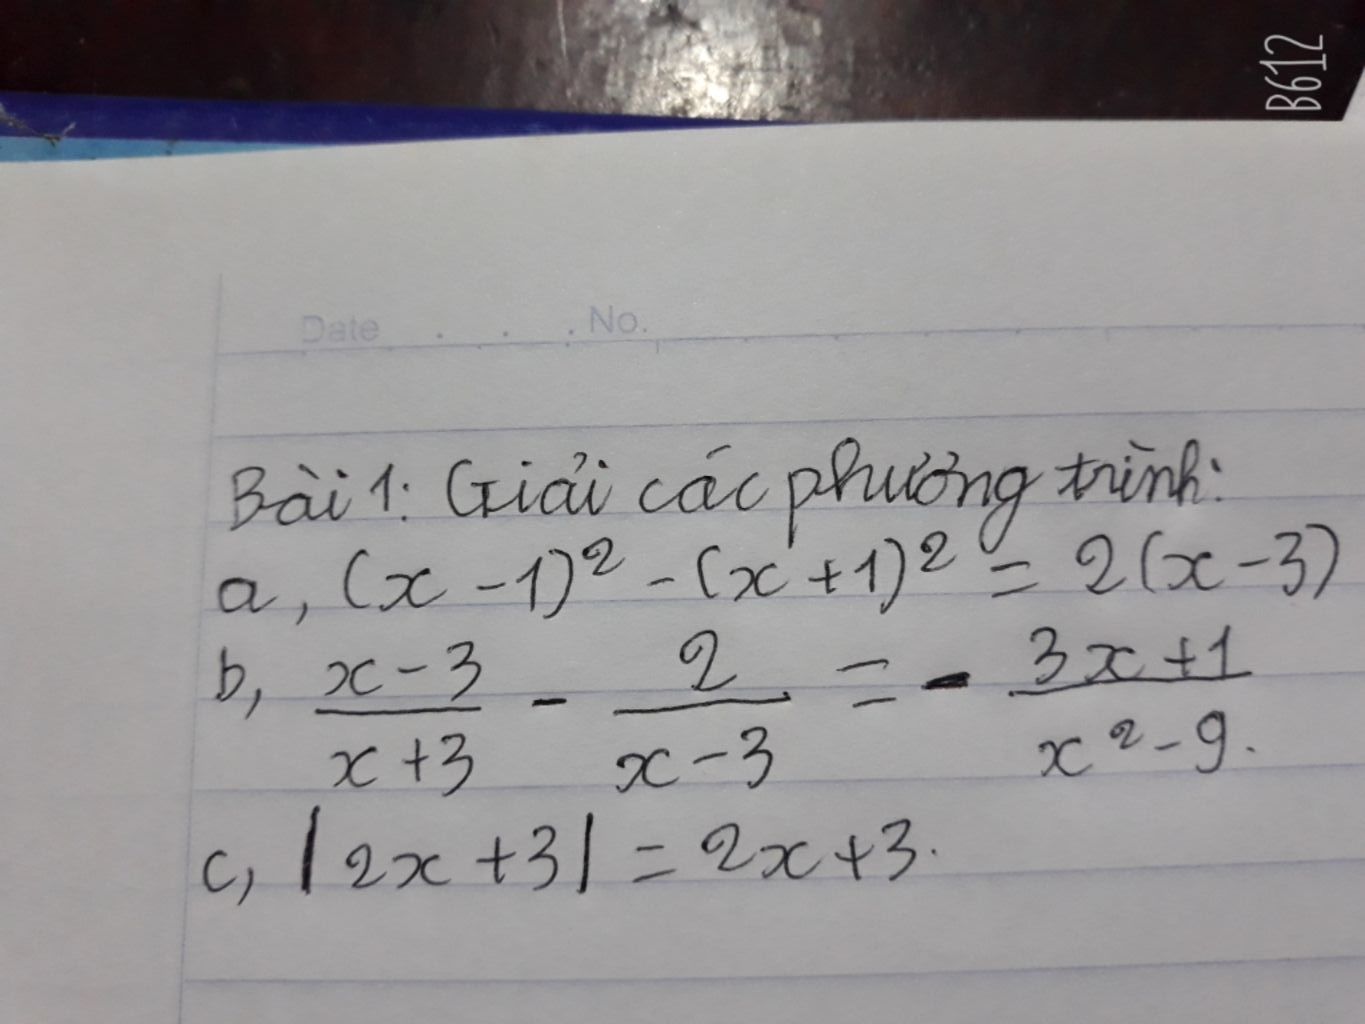 B612
Date . . . No.
Bài 1: Giải các phương trình:
a, (x - 1)² - (x + 1)² = 2(x - 3)
b, \frac{x - 3}{x + 3} - \frac{2}{x - 3} = - \frac{3x + 1}{x² - 9}.
c, |2x + 3| = 2x + 3.